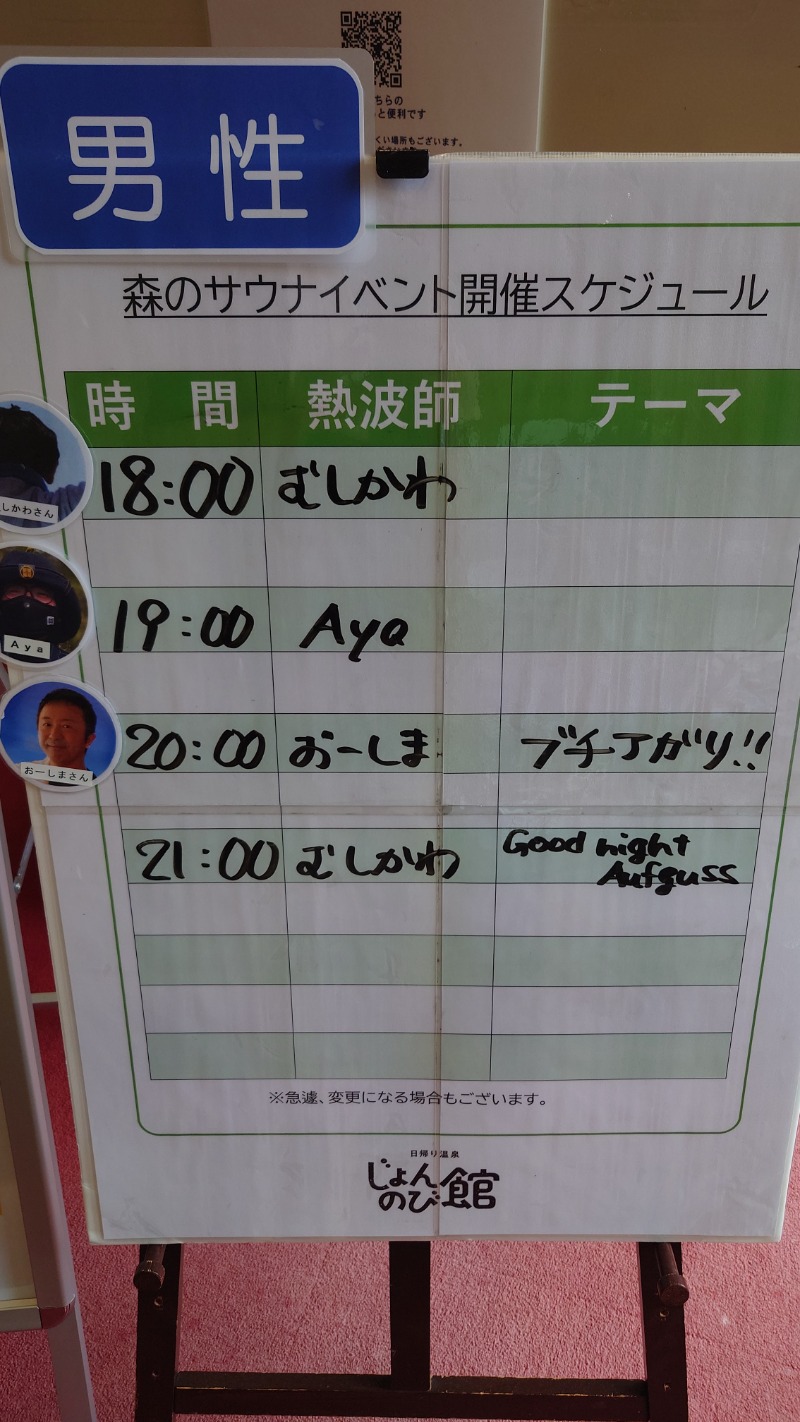 ちらの
と便利です
くい場所もございます。
男性
森のサウナイベント開催スケジュール
時間 熱波師 テーマ
18:00 むしかわ
しかわさん
19:00 Aya
Aya
20:00 おーしま ブチアガリ!!
おーしまさん
21:00 むしかわ Good night
Aufguss
※急遽、変更になる場合もございます。
日帰り温泉
じょん
のび館